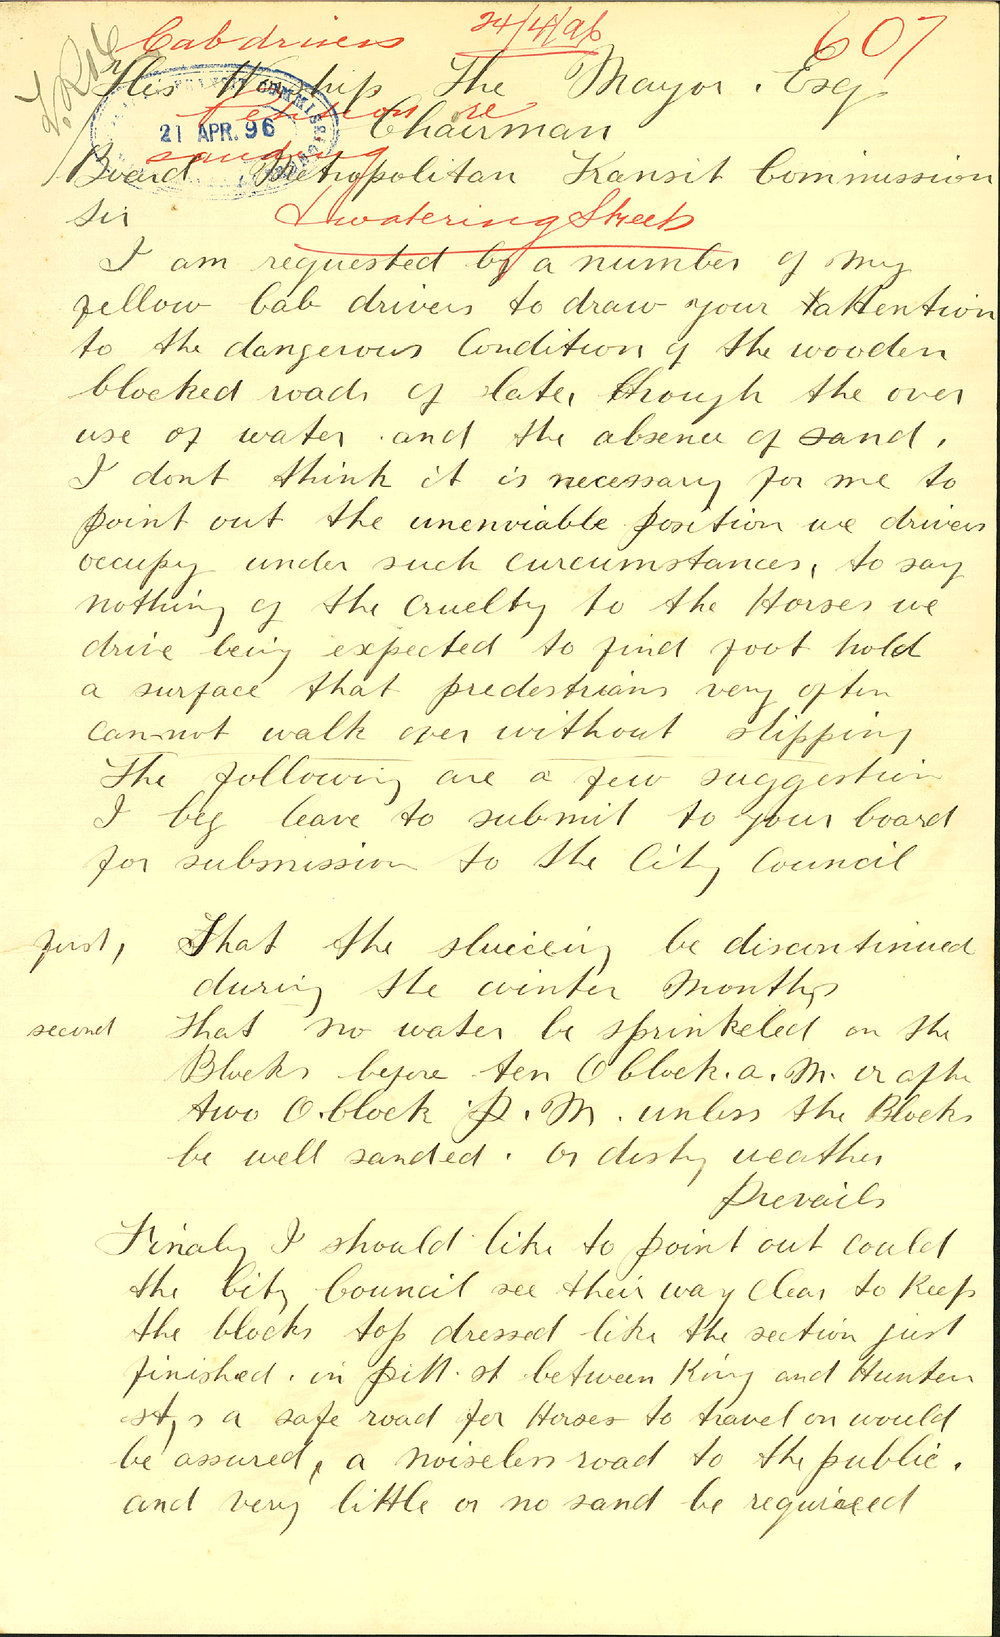 Cab drivers 24/4/96 607
His Worship The Mayor. Esq
petition re
Chairman
21 APR. 96
sanding
Board Metropolitan Transit Commission
Sir
& watering Streets
I am requested by a number of my
fellow Cab drivers to draw your attention
to the dangerous Condition of the wooden
blocked roads of late, through the over
use of water. and the absence of sand,
I dont think it is necessary for me to
point out the unenviable position we drivers
occupy under such curcumstances, to say
nothing of the cruelty to the Horses we
drive being expected to find foot hold
a surface that predestrians very often
cannot walk over without slipping
The following are a few suggestion
I beg leave to submit to your board
for submission to the City Council
first, That the sluiceing be discontinued
during the winter Months
second that no water be sprinkeled on the
Blocks before ten O Clock. a. M. or after
two O.Clock P. M. unless the Blocks
be well sanded. or dusty weather
Prevails
Finaly I should like to point out could
the City Council see their way Clear to Keep
the blocks top dressed like the section just
finished. in pitt. st between King and Hunter
sts a safe road for Horses to travel on would
be assured, a noiseless road to the public.
and very little or no sand be required